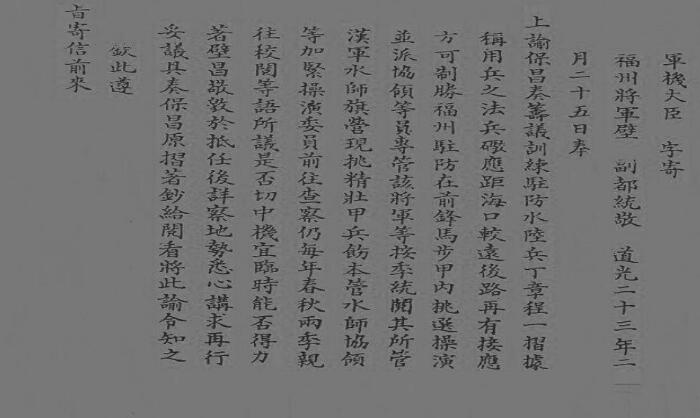 軍機大臣　字寄
福州將軍璧　副都統敬　道光二十三年二
月二十五日奉
上諭保昌奏籌議訓練駐防水陸兵丁章程一摺據
稱用兵之法兵礮應距海口較遠後路再有接應
方可制勝福州駐防在前鋒馬步甲內挑選操演
並派協領等員專管該將軍等按季統閱其所管
漢軍水師旗營現挑精壯甲兵飭本管水師協領
等加緊操演委員前往查察仍每年春秋兩季親
往校閱等語所議是否切中機宜臨時能否得力
著璧昌敬敦於抵任後詳察地勢悉心講求再行
妥議具奏保昌原摺著鈔給閱看將此諭令知之
欽此遵
旨寄信前來